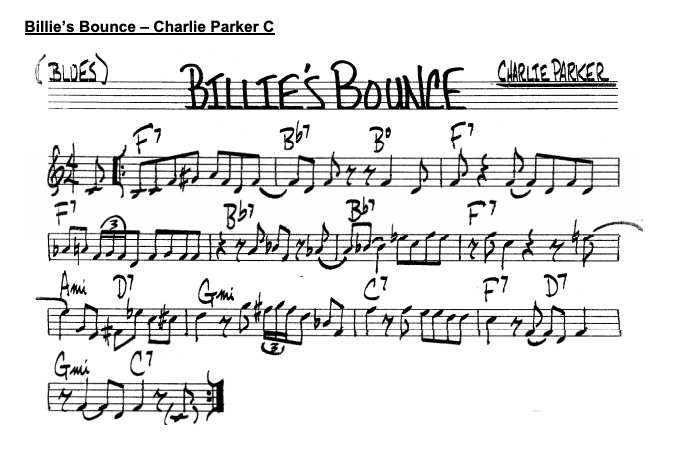 Billie's Bounce – Charlie Parker C
(BLUES) BILLIE'S BOUNCE CHARLIE PARKER
F7 Bb7 Bo F7
F7 3 Bb7 Bb7 F7
Ami D7 Gmi 3 C7 F7 D7
Gmi C7